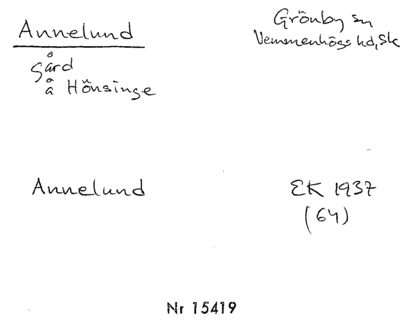 Annelund
Grönby sn
Vemmenhögs hd, Sk
gård
å Hönsinge
Annelund
EK 1937
(64)
Nr 15419